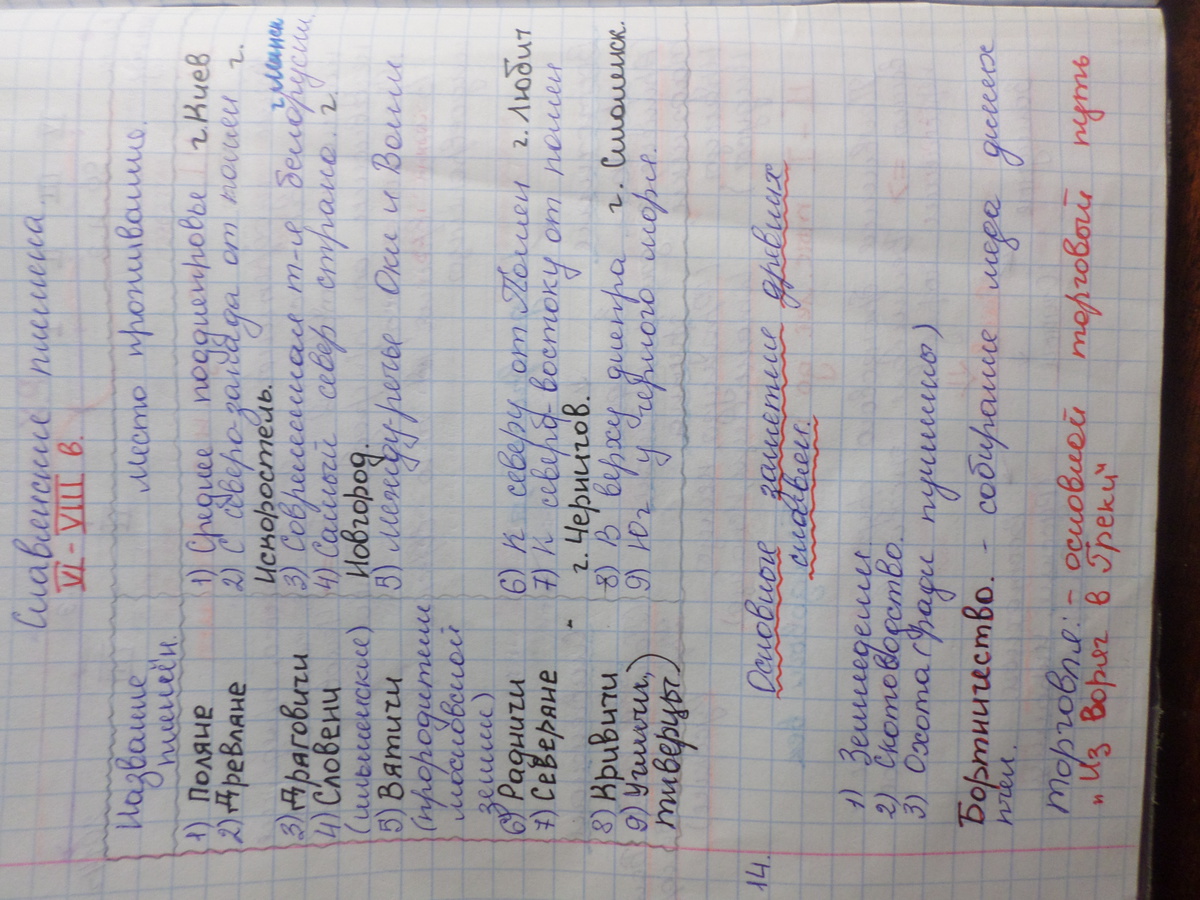 Славенские племена
VI - VIII в.
Название племён.
место проживание.
1) Поляне
1) Средне подднепровье г. Киев
2) Древляне
2) С северо-запада от полей г.
Искоростель.
3) Драговичи
3) Современная т-я белорусии г. Минск
4) Словени
4) Самый север страно. г.
(ильменские)
Новгород.
5) Вятичи
5) междуречье Оки и Волги
(прородители
московской
земли)
6) Радничи
6) К северу от Полей г. Любич
7) Северяне -
7) К северо-востоку от полей
г. Чернигов.
8) Кривити
8) В верху днепра г. Смоленск.
9) Уличи,
9) Юг у черного моря.
тиверцы)
14.
Основное занетие древних
славвен.
1) Земледелия.
2) Скотоводство.
3) Охота (ради пушнины)
Бортничество. - собирание меда диких
пчел.
торговля: - основной торговый путь
"Из Воряг в Греки"